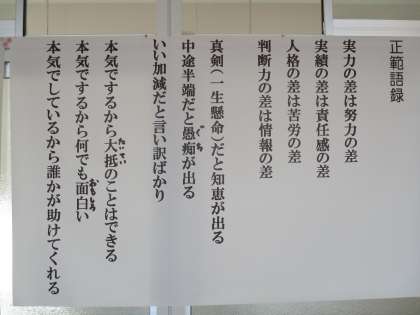 正範語録
実力の差は努力の差
実績の差は責任感の差
人格の差は苦労の差
判断力の差は情報の差
真剣(一生懸命)だと知恵が出る
中途半端だと愚痴が出る
ぐち
いい加減だと言い訳ばかり
本気でするから大抵のことはできる
たいてい
本気でするから何でも面白い
おもしろ
本気でしているから誰かが助けてくれる